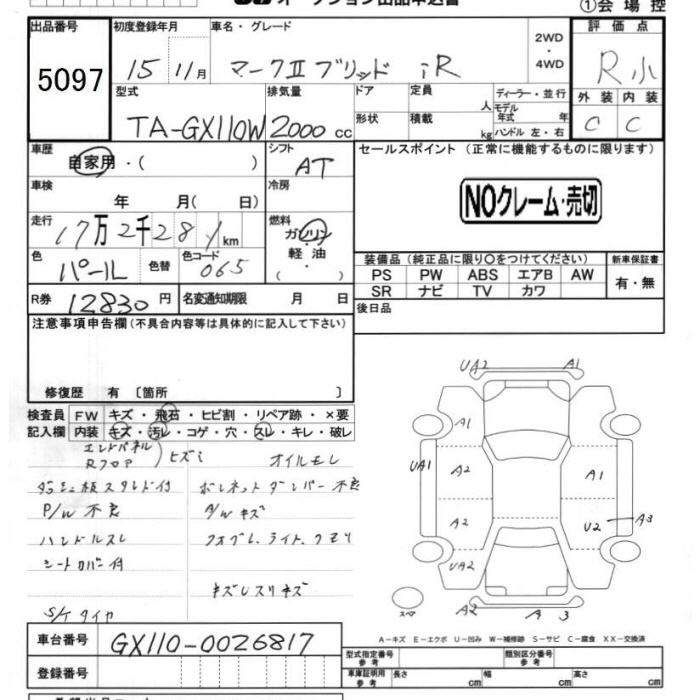 ①会場控
出品番号 初度登録年月 車名・グレード 2WD・4WD 評価点
5097 15 11月 マークⅡブリッド iR R小
型式 排気量 ドア 定員 人 ディーラー・並行 外装 内装
TA-GX110W 2000cc 形状 積載 kg モデル年式 年 ハンドル 左・右 C C
車歴 自家用・( ) シフト AT セールスポイント (正常に機能するものに限ります)
車検 年 月( 日) 冷房
NOクレーム・売切
走行 17万2千28 km 燃料 ガソリン・軽油 ( )
色 パール 色替 色コード 065
装備品 (純正品に限り○をつけてください) 新車保証書
PS PW ABS エアB AW 有・無
SR ナビ TV カワ
R券 12830円 名変通知期限 月 日 後日品
注意事項申告欄 (不具合内容等は具体的に記入して下さい)
修復歴 有 〔箇所 〕
検査員 FW キズ・飛石・ヒビ割・リペア跡・×要
記入欄 内装 キズ・汚レ・コゲ・穴・スレ・キレ・破レ
エンドパネル
Rフロア ヒズミ オイルモレ
ダッシュ板スタンド付 ボンネットダンパー不良
P/W不良 A/Wキズ
ハンドルスレ フォグL,ライト,クモリ
シートカバー付
キズレスリキズ
S/Tタイヤ
UA2 A1
A1
UA1 A2 A1
A2 U2 A3
UA2
スペア A2 A 3
A-キズ E-エクボ U-凹み W-補修跡 S-サビ C-腐食 XX-交換済
車台番号 GX110-0026817
型式指定番号 参考 類別区分番号 参考
登録番号 車庫証明用 参考 長さ cm 幅 cm 高さ cm